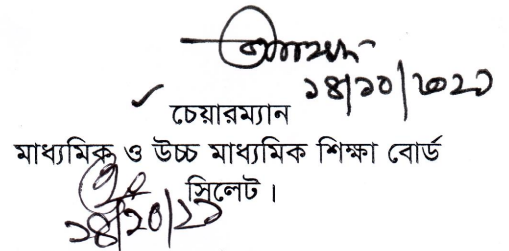 ১৪/১০/২০২১
চেয়ারম্যান
মাধ্যমিক ও উচ্চ মাধ্যমিক শিক্ষা বোর্ড
সিলেট।
১৪/১০/২১